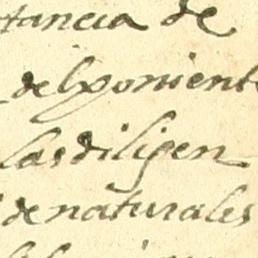 tancia de
del poniente
las diligen
de naturales